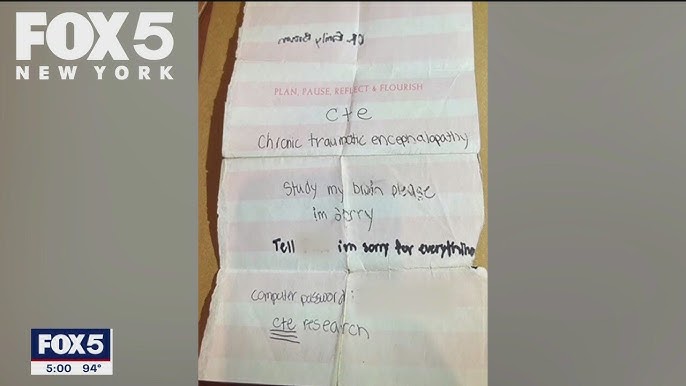 FOX 5
NEW YORK
PLAN, PAUSE, REFLECT & FLOURISH
cte
chronic traumatic encephalopathy
Study my brain please
im sorry
Tell im sorry for everything
computer password:
cte research
FOX 5
5:00 94°